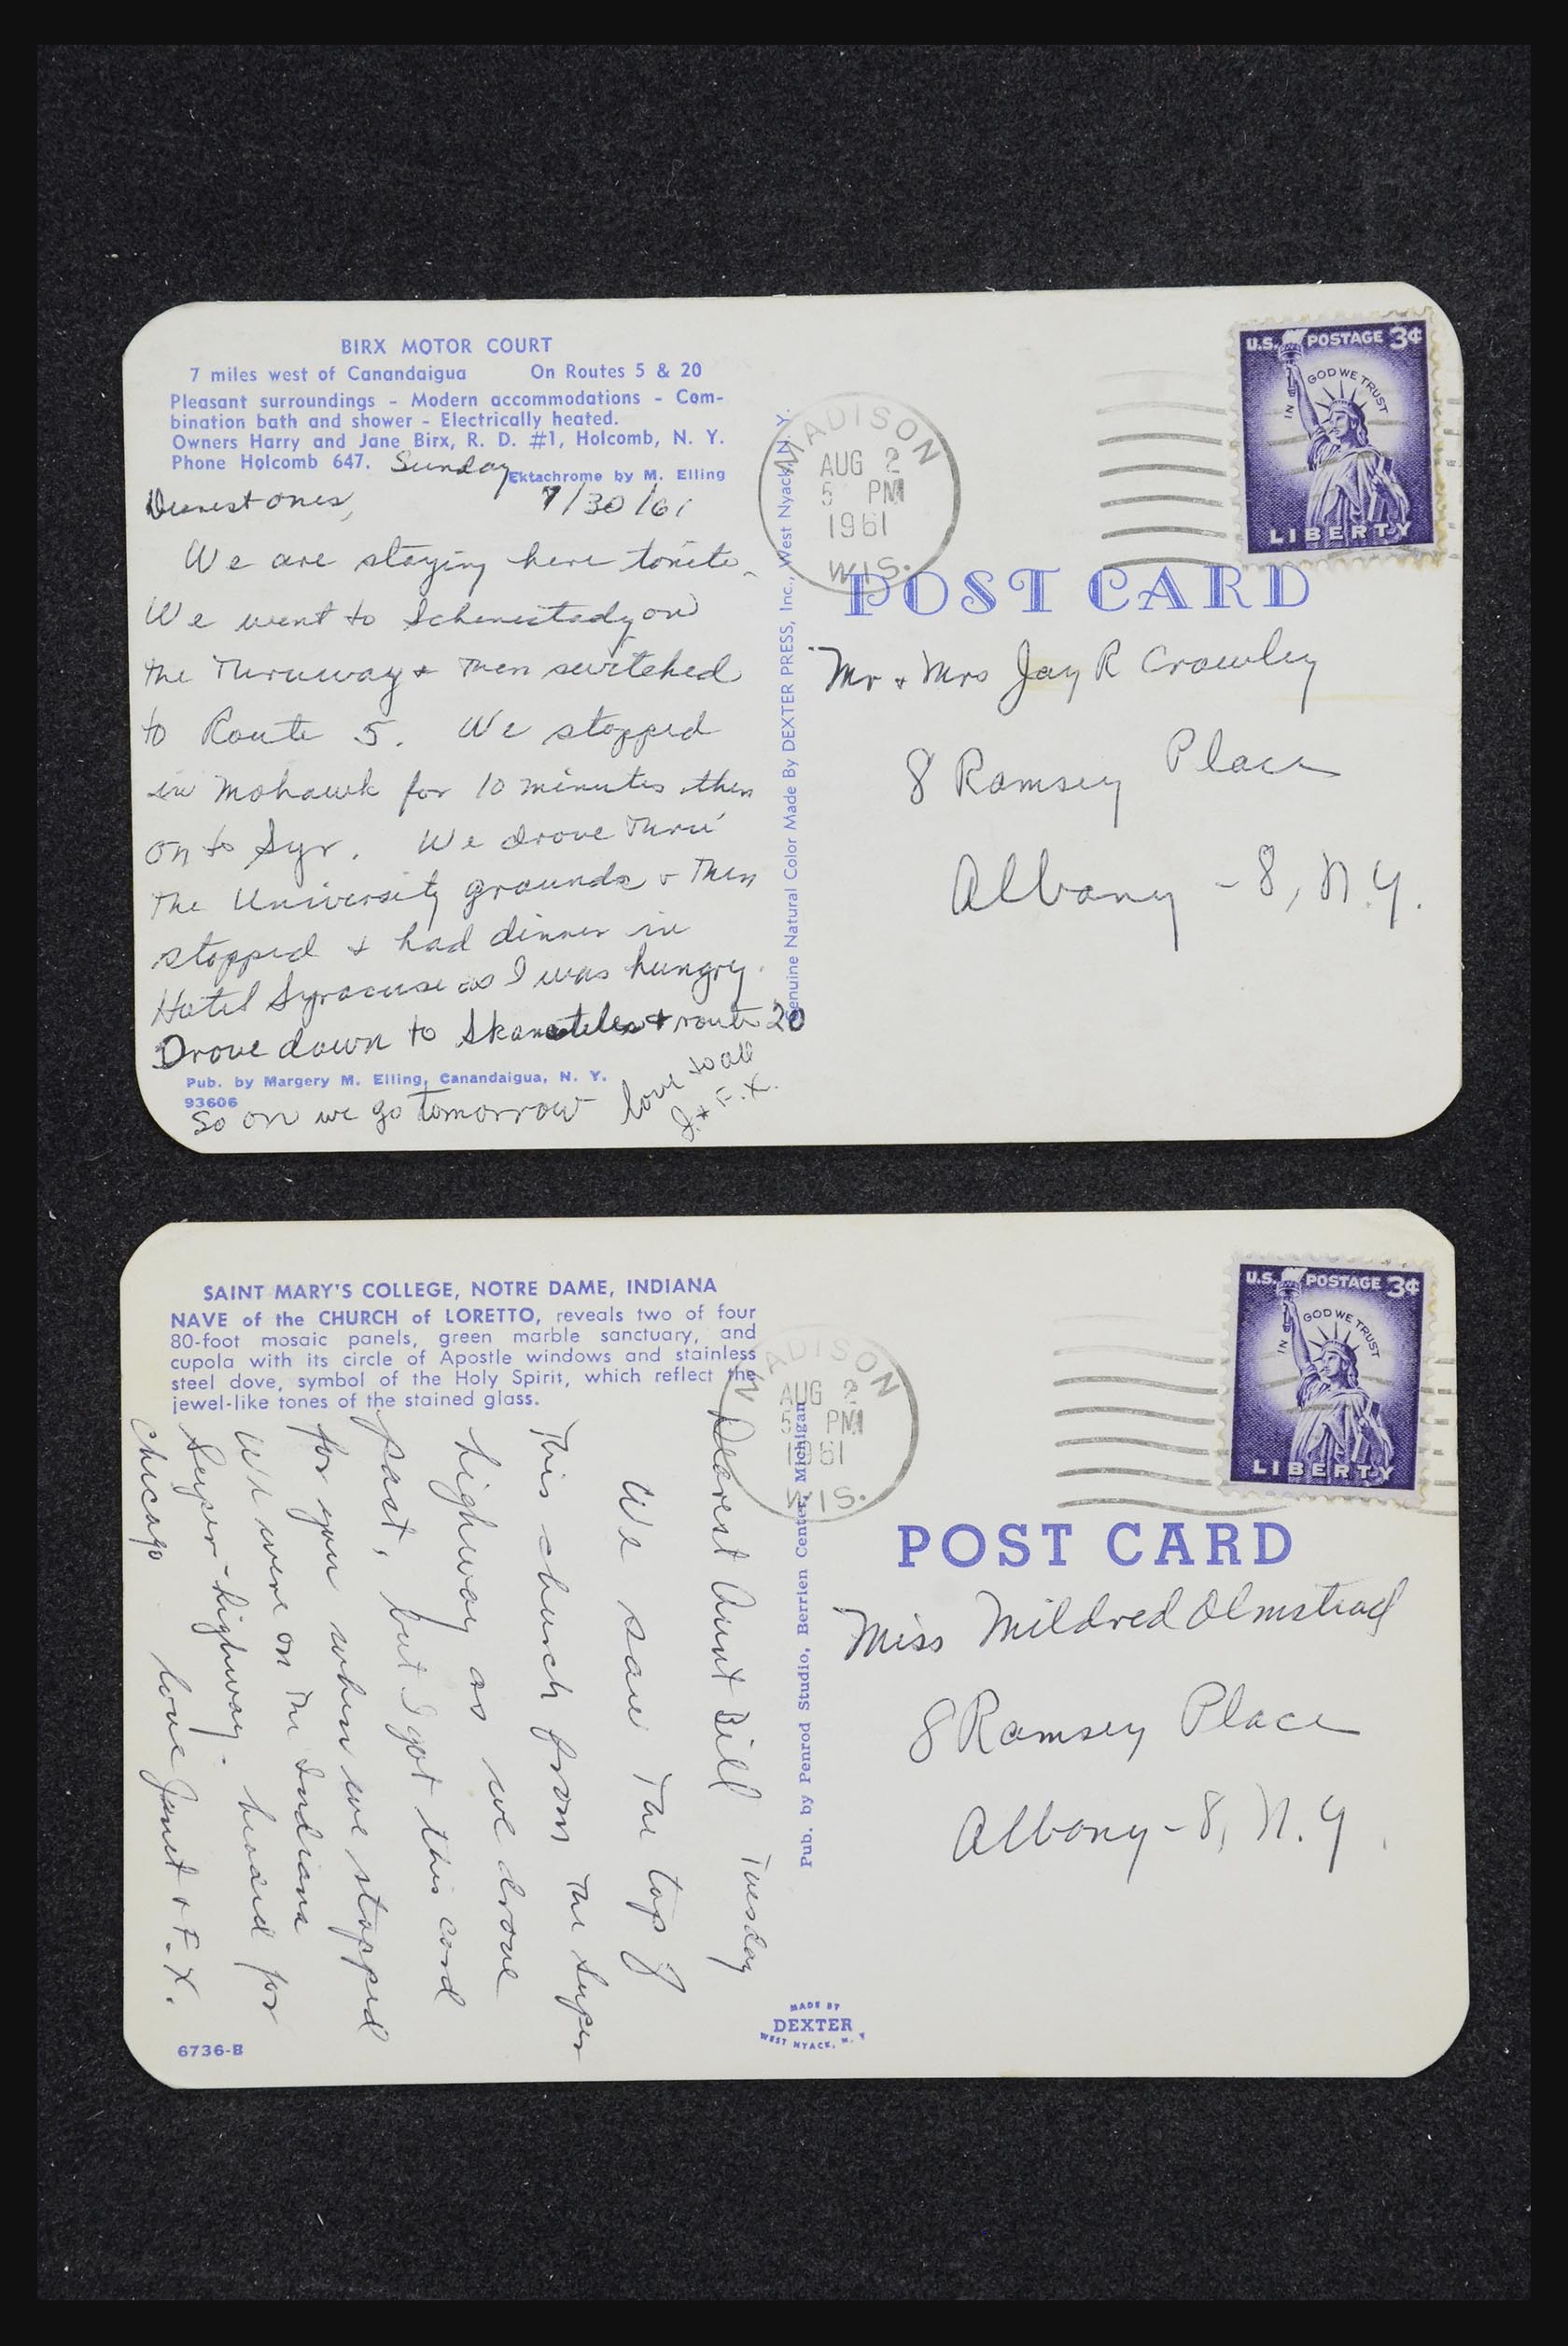 BIRX MOTOR COURT
7 miles west of Canandaigua On Routes 5 & 20
Pleasant surroundings - Modern accommodations - Com-
bination bath and shower - Electrically heated.
Owners Harry and Jane Birx, R. D. #1, Holcomb, N. Y.
Phone Holcomb 647.
Ektachrome by M. Elling
Sunday
7/30/61
Dearest ones,
We are staying here tonite.
We went to Schenectady on
the Thruway & then switched
to Route 5. We stopped
in Mohawk for 10 minutes then
on to Syr. We drove thru
the University grounds & then
stopped & had dinner in
Hotel Syracuse as I was hungry.
Drove down to Skaneateles & route 20
Pub. by Margery M. Elling, Canandaigua, N. Y.
93606
So on we go tomorrow
love to all
J. & F.X.
Genuine Natural Color Made By DEXTER PRESS, Inc., West Nyack, N. Y.
MADISON
AUG 2
5 PM
1961
WIS.
U.S. POSTAGE 3¢
IN GOD WE TRUST
LIBERTY
POST CARD
Mr & Mrs Jay R Crowley
8 Ramsey Place
Albany - 8, N.Y.
SAINT MARY'S COLLEGE, NOTRE DAME, INDIANA
NAVE of the CHURCH of LORETTO, reveals two of four
80-foot mosaic panels, green marble sanctuary, and
cupola with its circle of Apostle windows and stainless
steel dove, symbol of the Holy Spirit, which reflect the
jewel-like tones of the stained glass.
Tuesday
Dearest Aunt Bill
We saw the top of
this church from the super
highway as we drove
past, but I got this card
for you when we stopped
We were on the Indiana
Super-highway. headed for
Chicago love Janet & F.X.
6736-B
Pub. by Penrod Studio, Berrien Center, Michigan
MADE BY
DEXTER
WEST NYACK, N. Y.
MADISON
AUG 2
5 PM
1961
WIS.
U.S. POSTAGE 3¢
IN GOD WE TRUST
LIBERTY
POST CARD
Miss Mildred Olmstead
8 Ramsey Place
Albany - 8, N.Y.